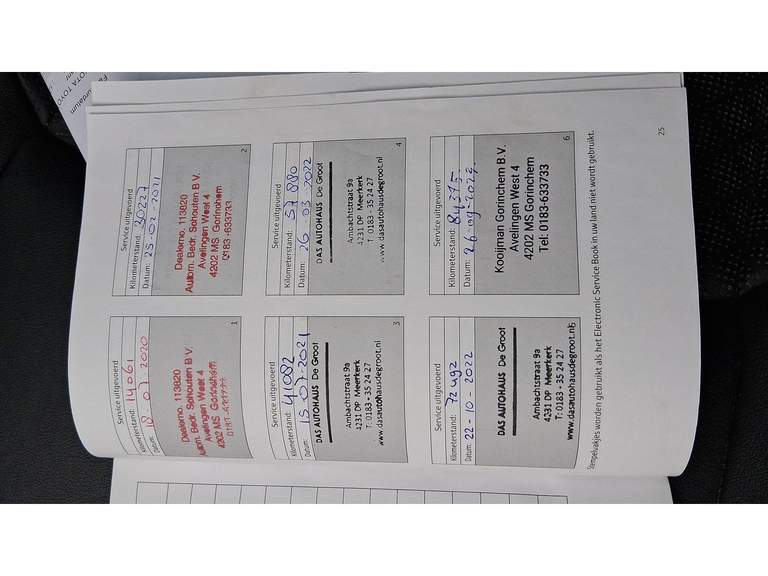 Service uitgevoerd
Kilometerstand: 14061
Datum: 18 07 2020
Dealerno. 113820
Autom. Bedr. Schouten B.V.
Avelingen West 4
4202 MS Gorinchem
1
Service uitgevoerd
Kilometerstand: 30227
Datum: 25-02-2021
Dealerno. 113820
Autom. Bedr. Schouten B.V.
Avelingen West 4
4202 MS Gorinchem
0183-633733
2
Service uitgevoerd
Kilometerstand: 41082
Datum: 15-07-2021
DAS AUTOHAUS De Groot
Ambachtstraat 9a
4231 DP Meerkerk
T: 0183 - 35 24 27
www.dasautohausdegroot.nl
3
Service uitgevoerd
Kilometerstand: 57880
Datum: 26-03-2022
DAS AUTOHAUS De Groot
Ambachtstraat 9a
4231 DP Meerkerk
T: 0183 - 35 24 27
www.dasautohausdegroot.nl
4
Service uitgevoerd
Kilometerstand:
Datum: 22-10-2022
DAS AUTOHAUS De Groot
Ambachtstraat 9a
4231 DP Meerkerk
T: 0183 - 35 24 27
www.dasautohausdegroot.nl
5
Service uitgevoerd
Kilometerstand: 84375
Datum:
Kooijman Gorinchem B.V.
Avelingen West 4
4202 MS Gorinchem
Tel: 0183-633733
6
Stempelvakjes worden gebruikt als het Electronic Service Book in uw land niet wordt gebruikt.
25